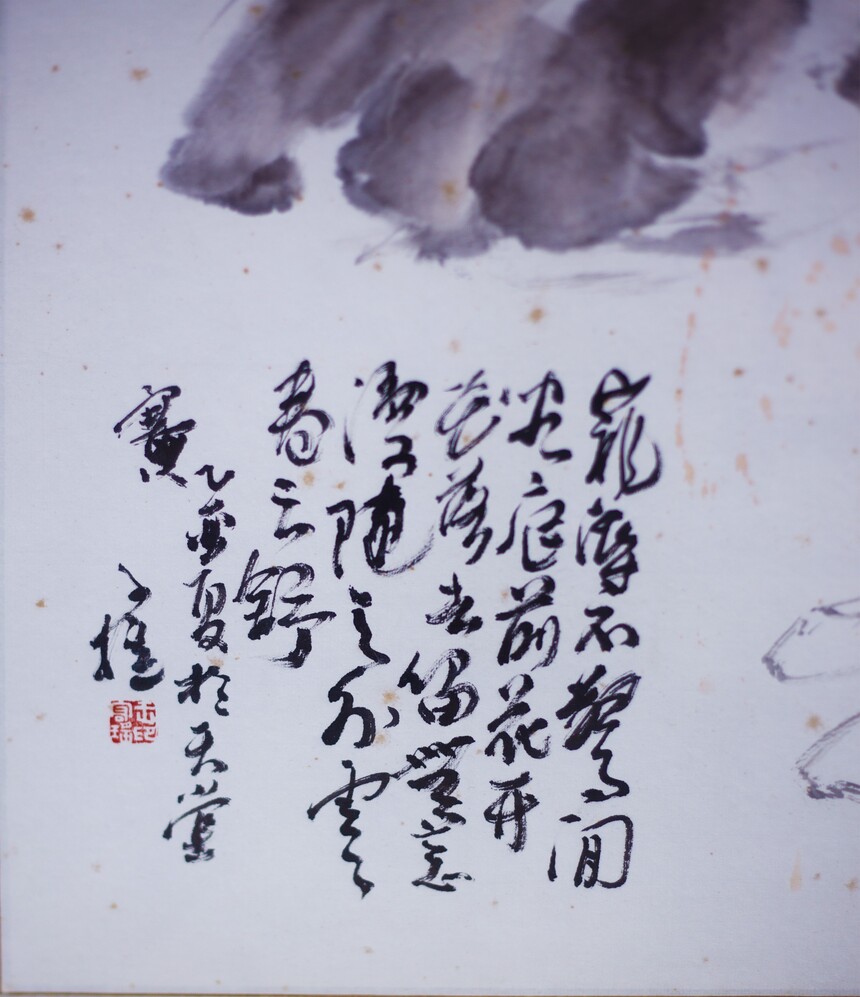 寵辱不驚閒
看庭前花開
花落去留無意
漫隨天外雲
卷云舒
乙亥夏於天堂
寨